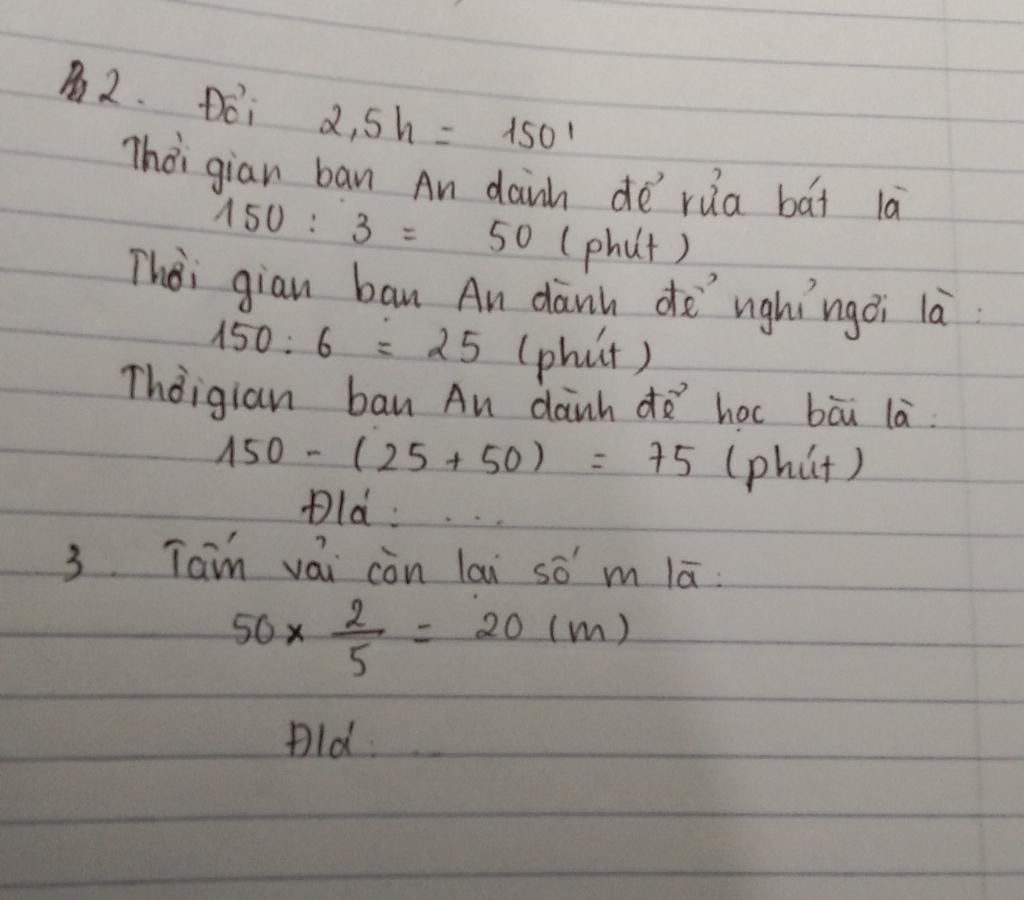 2. Đổi 2,5h = 150'
Thời gian bạn An dành để rửa bát là
150 : 3 = 50 (phút)
Thời gian bạn An dành để nghỉ ngơi là :
150 : 6 = 25 (phút)
Thời gian bạn An dành để học bài là :
150 - (25 + 50) = 75 (phút)
Đ/á : ...
3. Tấm vải còn lại số m là :
50 x 2/5 = 20 (m)
Đ/á : ...